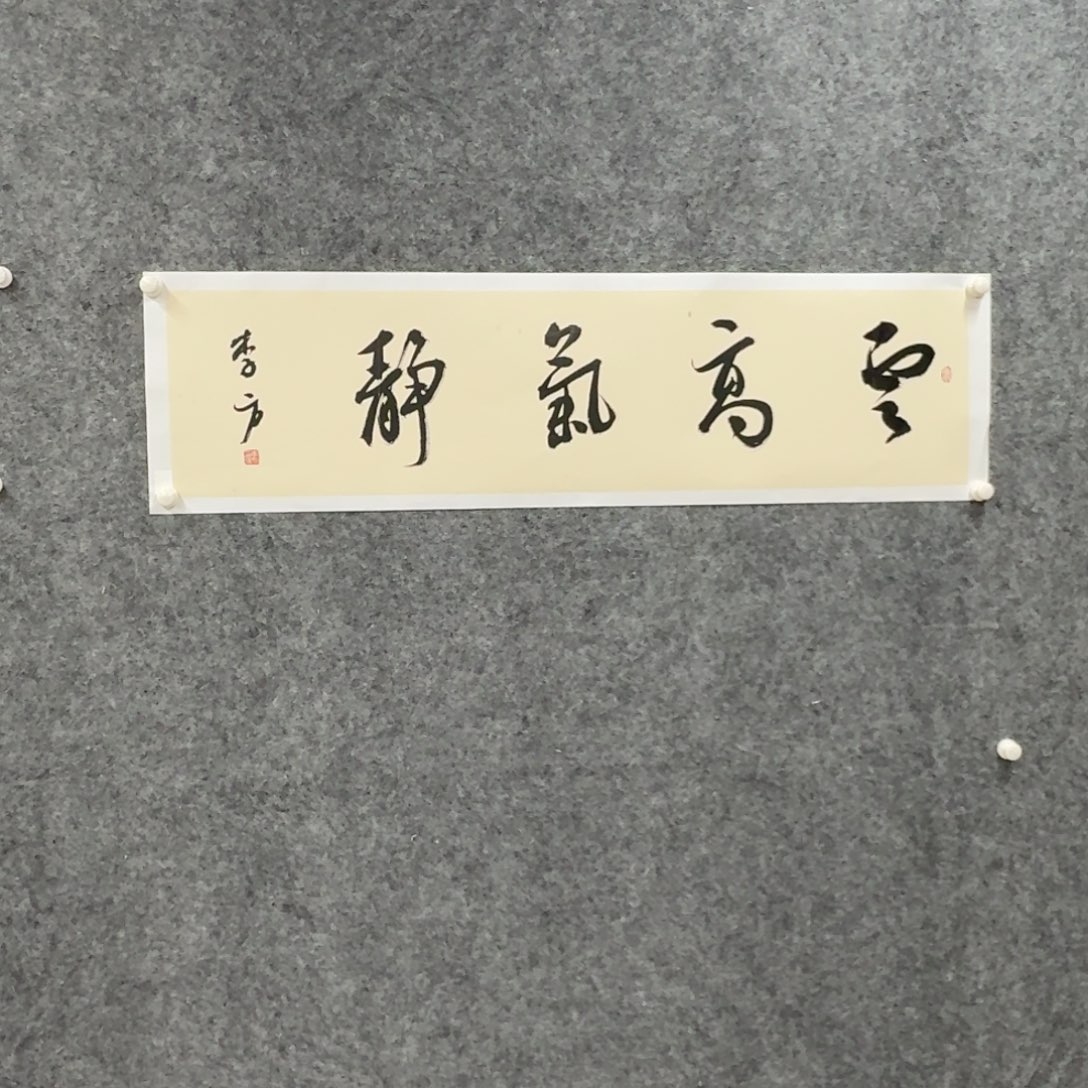 雲高氣靜
李方